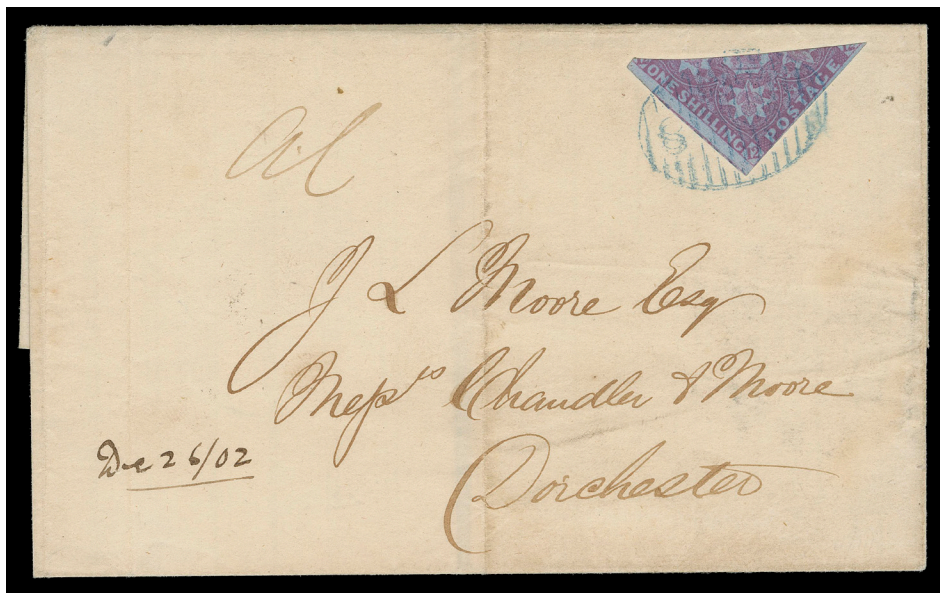 ONE SHILLING POSTAGE
12
8
J L Moore Esq
Mess^rs Chandler & Moore
Dorchester
De 26/02